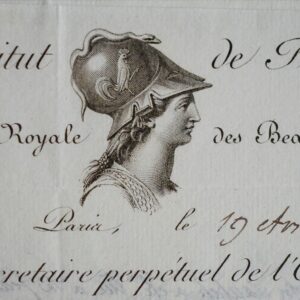 itut de F
Royale des Bea
Paris, le 19 Avr
cretaire perpétuel de l'